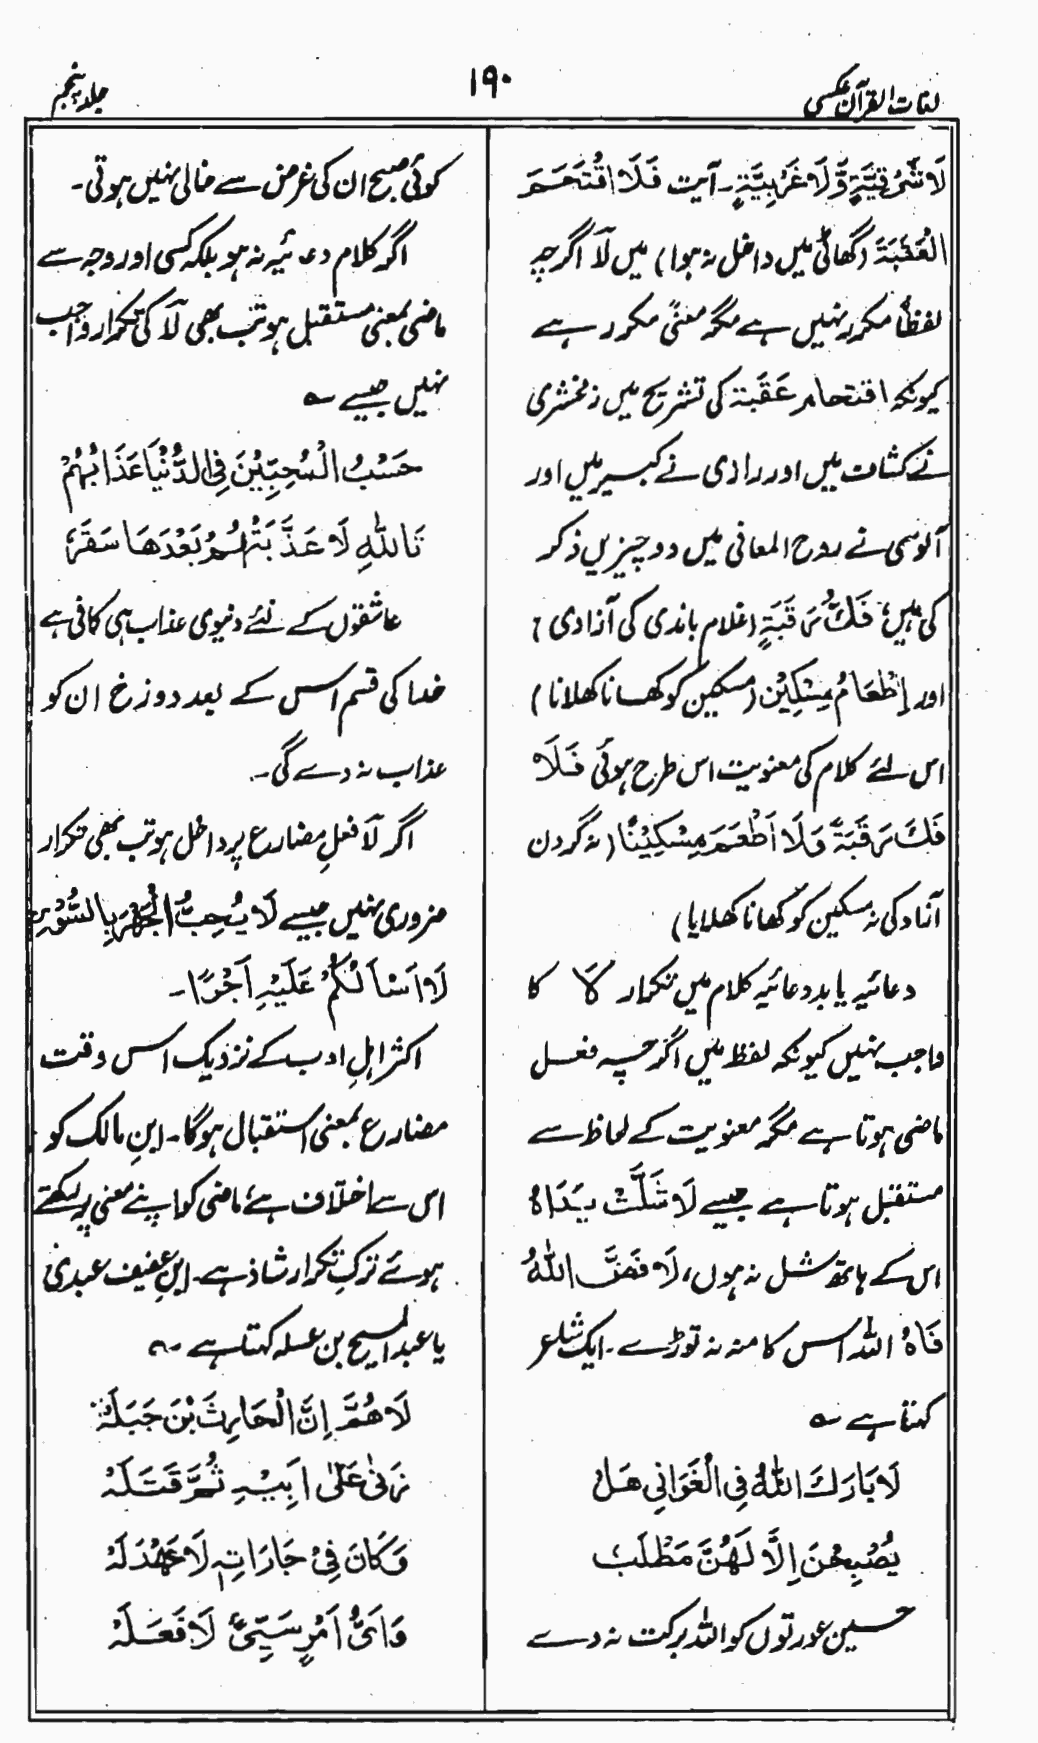 لغات القرآن عکسی
۱۹۰
جلد پنجم
لَا شَرْقِيَّةٍ وَّلَا غَرْبِيَّةٍ۔ آیت فَلَا اقْتَحَمَ
الْعَقَبَةَ (گھاٹی میں داخل نہ ہوا) میں لَآ اگرچہ
لفظاً مکرر نہیں ہے مگر معنیً مکرر ہے
کیونکہ اقتحام عَقَبَة کی تشریح میں زمخشری
نے کشاف میں اور رازی نے کبیر میں اور
آلوسی نے روح المعانی میں دو چیزیں ذکر
کی ہیں، فَكُّ رَقَبَةٍ (غلام باندی کی آزادی)
اور إِطْعَامُ مِسْكِيْن (مسکین کو کھانا کھلانا)
اس لئے کلام کی معنویت اس طرح ہوئی فَلَا
فَكَّ رَقَبَةً وَلَا اَطْعَمَ مِسْكِيْنًا (نہ گردن
آزاد کی نہ مسکین کو کھانا کھلایا)
دعائیہ یا بد دعائیہ کلام میں تکرار لَا کا
واجب نہیں کیونکہ لفظ میں اگرچہ فعل
ماضی ہوتا ہے مگر معنویت کے لحاظ سے
مستقبل ہوتا ہے جیسے لَا شَلَّتْ يَدَاهُ
اس کے ہاتھ شل نہ ہوں، لَا فَضَّ اللّٰهُ
فَاهُ اللہ اس کا منہ نہ توڑے۔ ایک شاعر
کہتا ہے ؎
لَا بَارَكَ اللّٰهُ فِي الْغَوَانِي هَلْ
يُصْبِحْنَ اِلَّا لَهُنَّ مَطْلَبُ
حسین عورتوں کو اللہ برکت نہ دے
کوئی صبح ان کی غرض سے خالی نہیں ہوتی۔
اگر کلام دعائیہ نہ ہو بلکہ کسی اور وجہ سے
ماضی بمعنی مستقبل ہو تب بھی لَآ کی تکرار واجب
نہیں جیسے ؎
حَسْبُ الْمُحِبِّيْنَ فِي الدُّنْيَا عَذَابُهُمْ
تَاللّٰهِ لَا عَذَّبَتْهُمْ بَعْدَهَا سَقَرُ
عاشقوں کے لئے دنیوی عذاب ہی کافی ہے
خدا کی قسم اس کے بعد دوزخ ان کو
عذاب نہ دے گی۔
اگر لَا فعلِ مضارع پر داخل ہو تب بھی تکرار
ضروری نہیں جیسے لَا يُحِبُّ الْجَهْرَ بِالسُّوْءِ
لَا اَسْاَلُكُمْ عَلَيْهِ اَجْرًا۔
اکثر اہلِ ادب کے نزدیک اس وقت
مضارع بمعنی استقبال ہوگا۔ ابنِ مالک کو
اس سے اختلاف ہے ماضی کو اپنے معنی پر رکھتے
ہوئے ترکِ تکرار شاذ ہے۔ ابنِ عفیف عبدی
یا عبد المسیح بن عسلہ کہتا ہے ؎
لَا هُمَّ اِنَّ الْحَارِثَ بْنَ جَبَلَهْ
زَنٰى عَلٰى اَبِيْهِ ثُمَّ قَتَلَهْ
وَكَانَ فِيْ جَارَاتِهٖ لَا عَهْدَ لَهْ
وَاَيُّ اَمْرٍ سَيِّئٍ لَا فَعَلَهْ